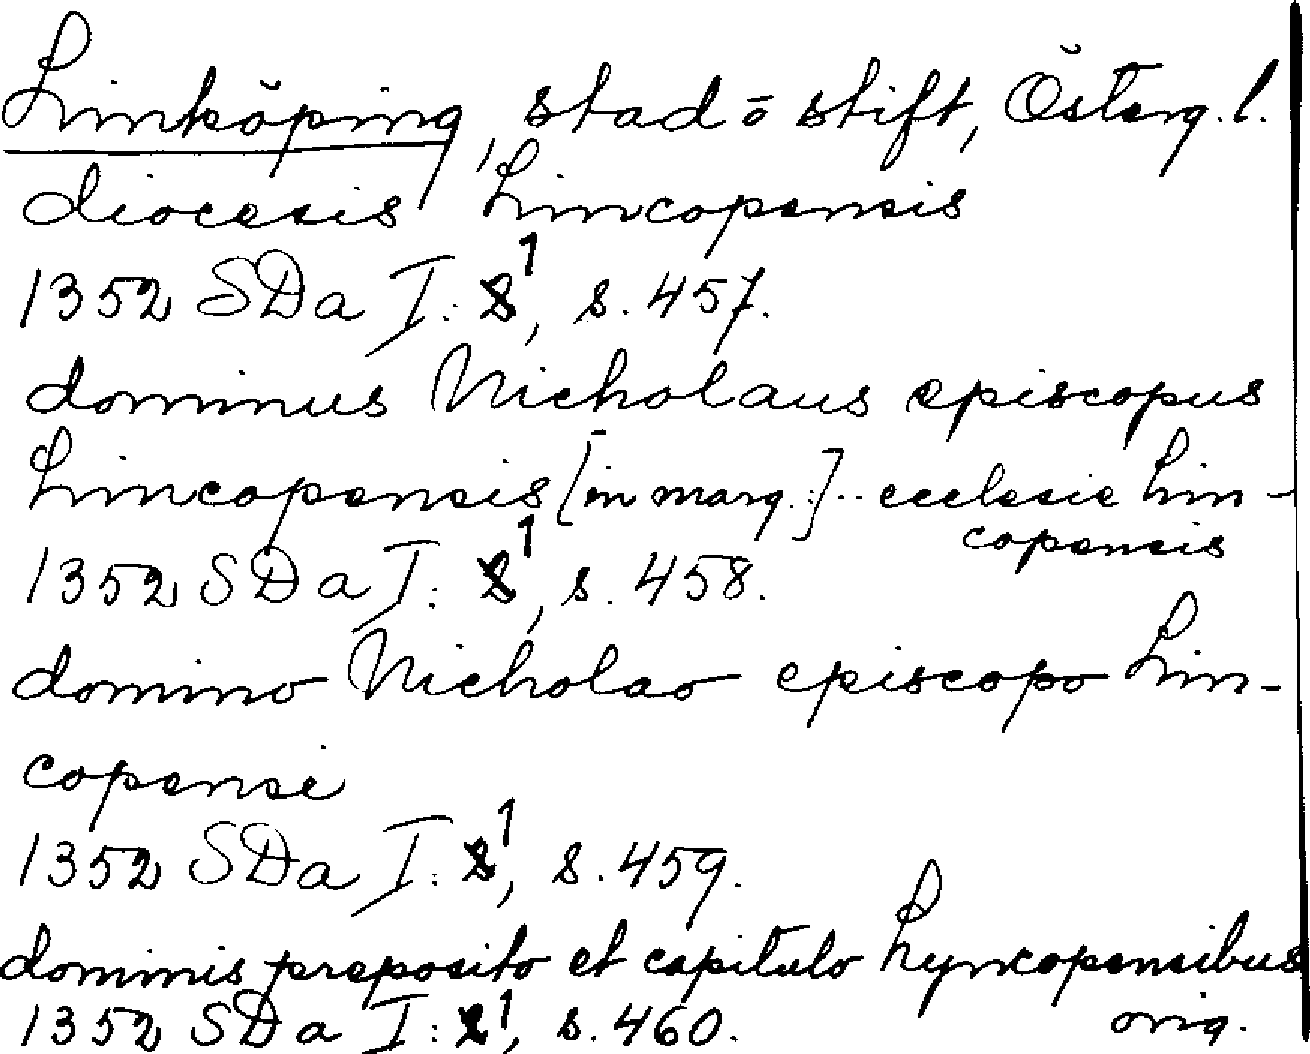 Linköping, stad ō stift, Österg. l.
diocesis Lincopensis
1352 SDa I: 1, s. 457.
dominus Nicholaus episcopus
Lincopensis [in marg.:] .. ecclesie Lin-
copensis
1352 SDa I: 1, s. 458.
domino Nicholao episcopo Lin-
copensi
1352 SDa I: 1, s. 459.
dominis preposito et capitulo Lyncopensibus
1352 SDa I: 1, s. 460. orig.